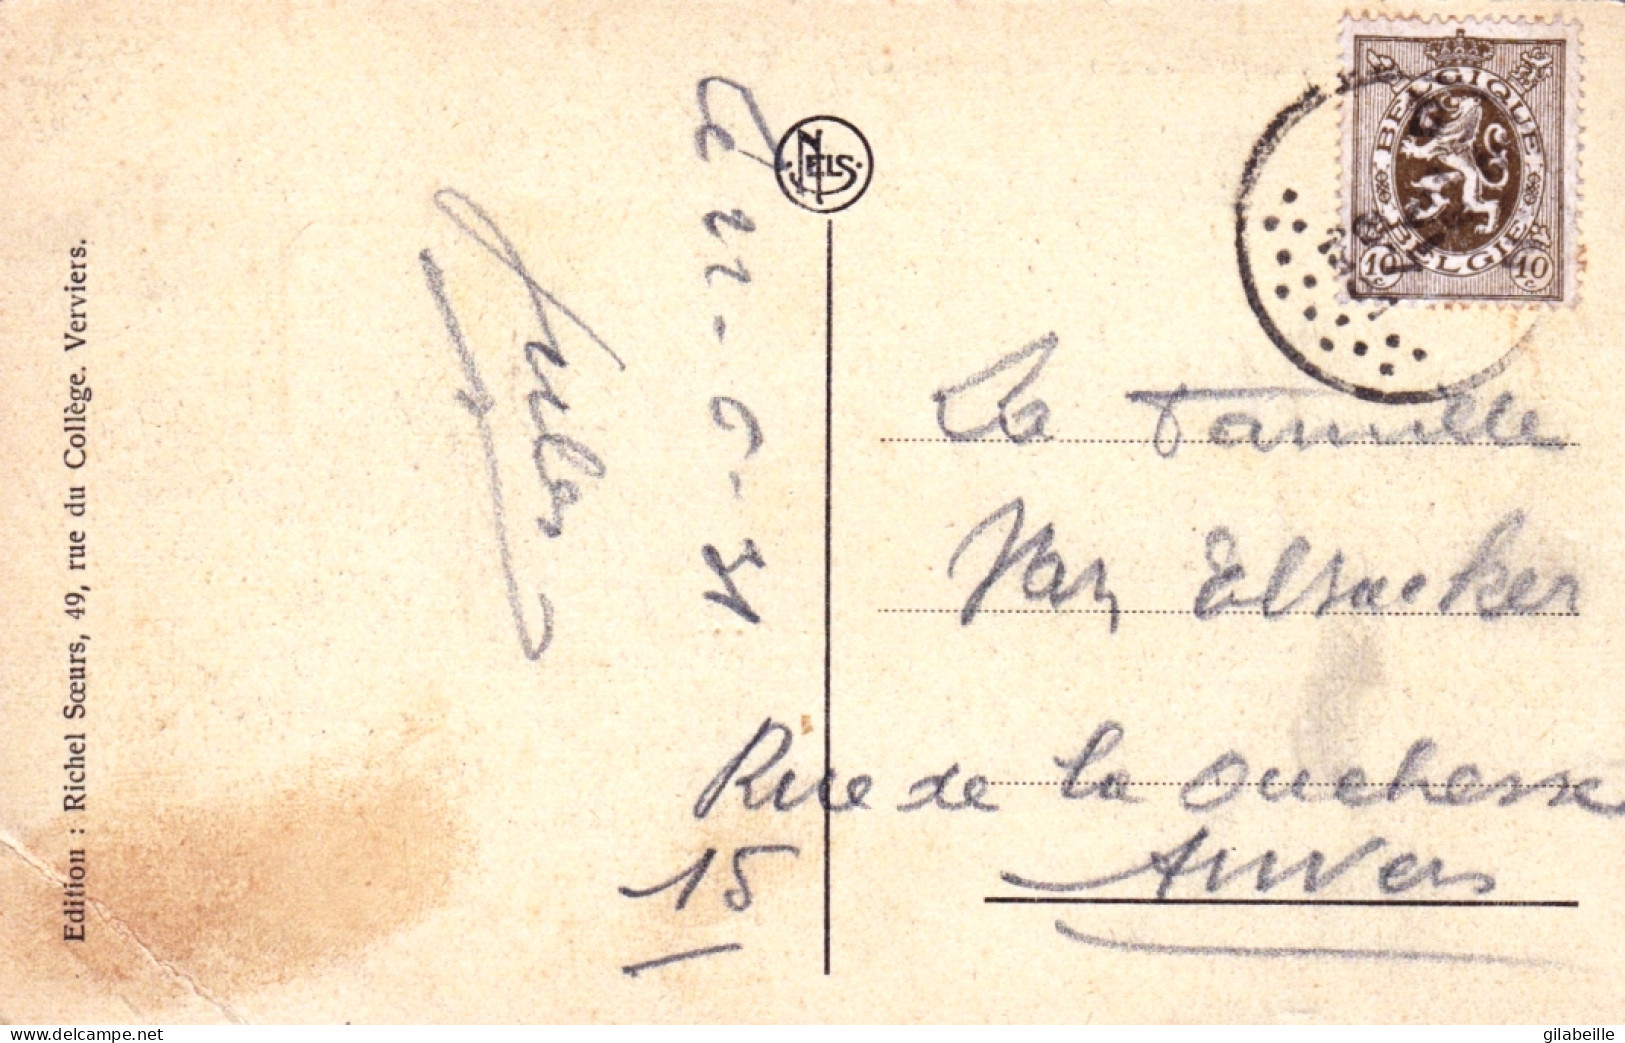 Edition : Richel Sœurs, 49, rue du Collège. Verviers.
Le 22-6-31
NELS
BELGIQUE
BELGIE
10c 10c
La Famille
Van Elsacker
Rue de la Duchesse
15
Anvers
www.delcampe.net
gilabeille